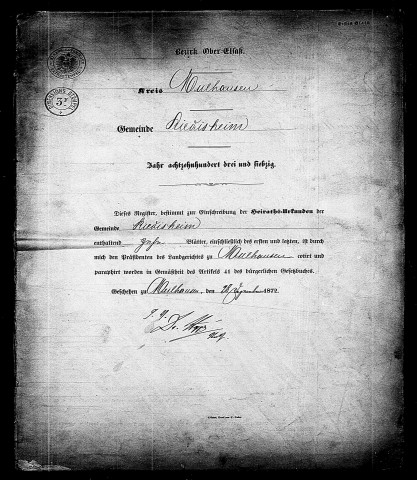 Bezirk Ober-Elsaß.
Kreis Mulhausen
Gemeinde Riedisheim
Jahr achtzehnhundert drei und siebzig.
Dieses Register, bestimmt zur Einschreibung der Heiraths-Urkunden der
Gemeinde Riedisheim
enthaltend Blätter, einschließlich des ersten und letzten, ist durch
mich den Präsidenten des Landgerichts zu Mulhausen cotirt und
paraphirt worden in Gemäßheit des Artikels 41 des bürgerlichen Gesetzbuches.
Geschehen zu Mulhausen, den 1872.